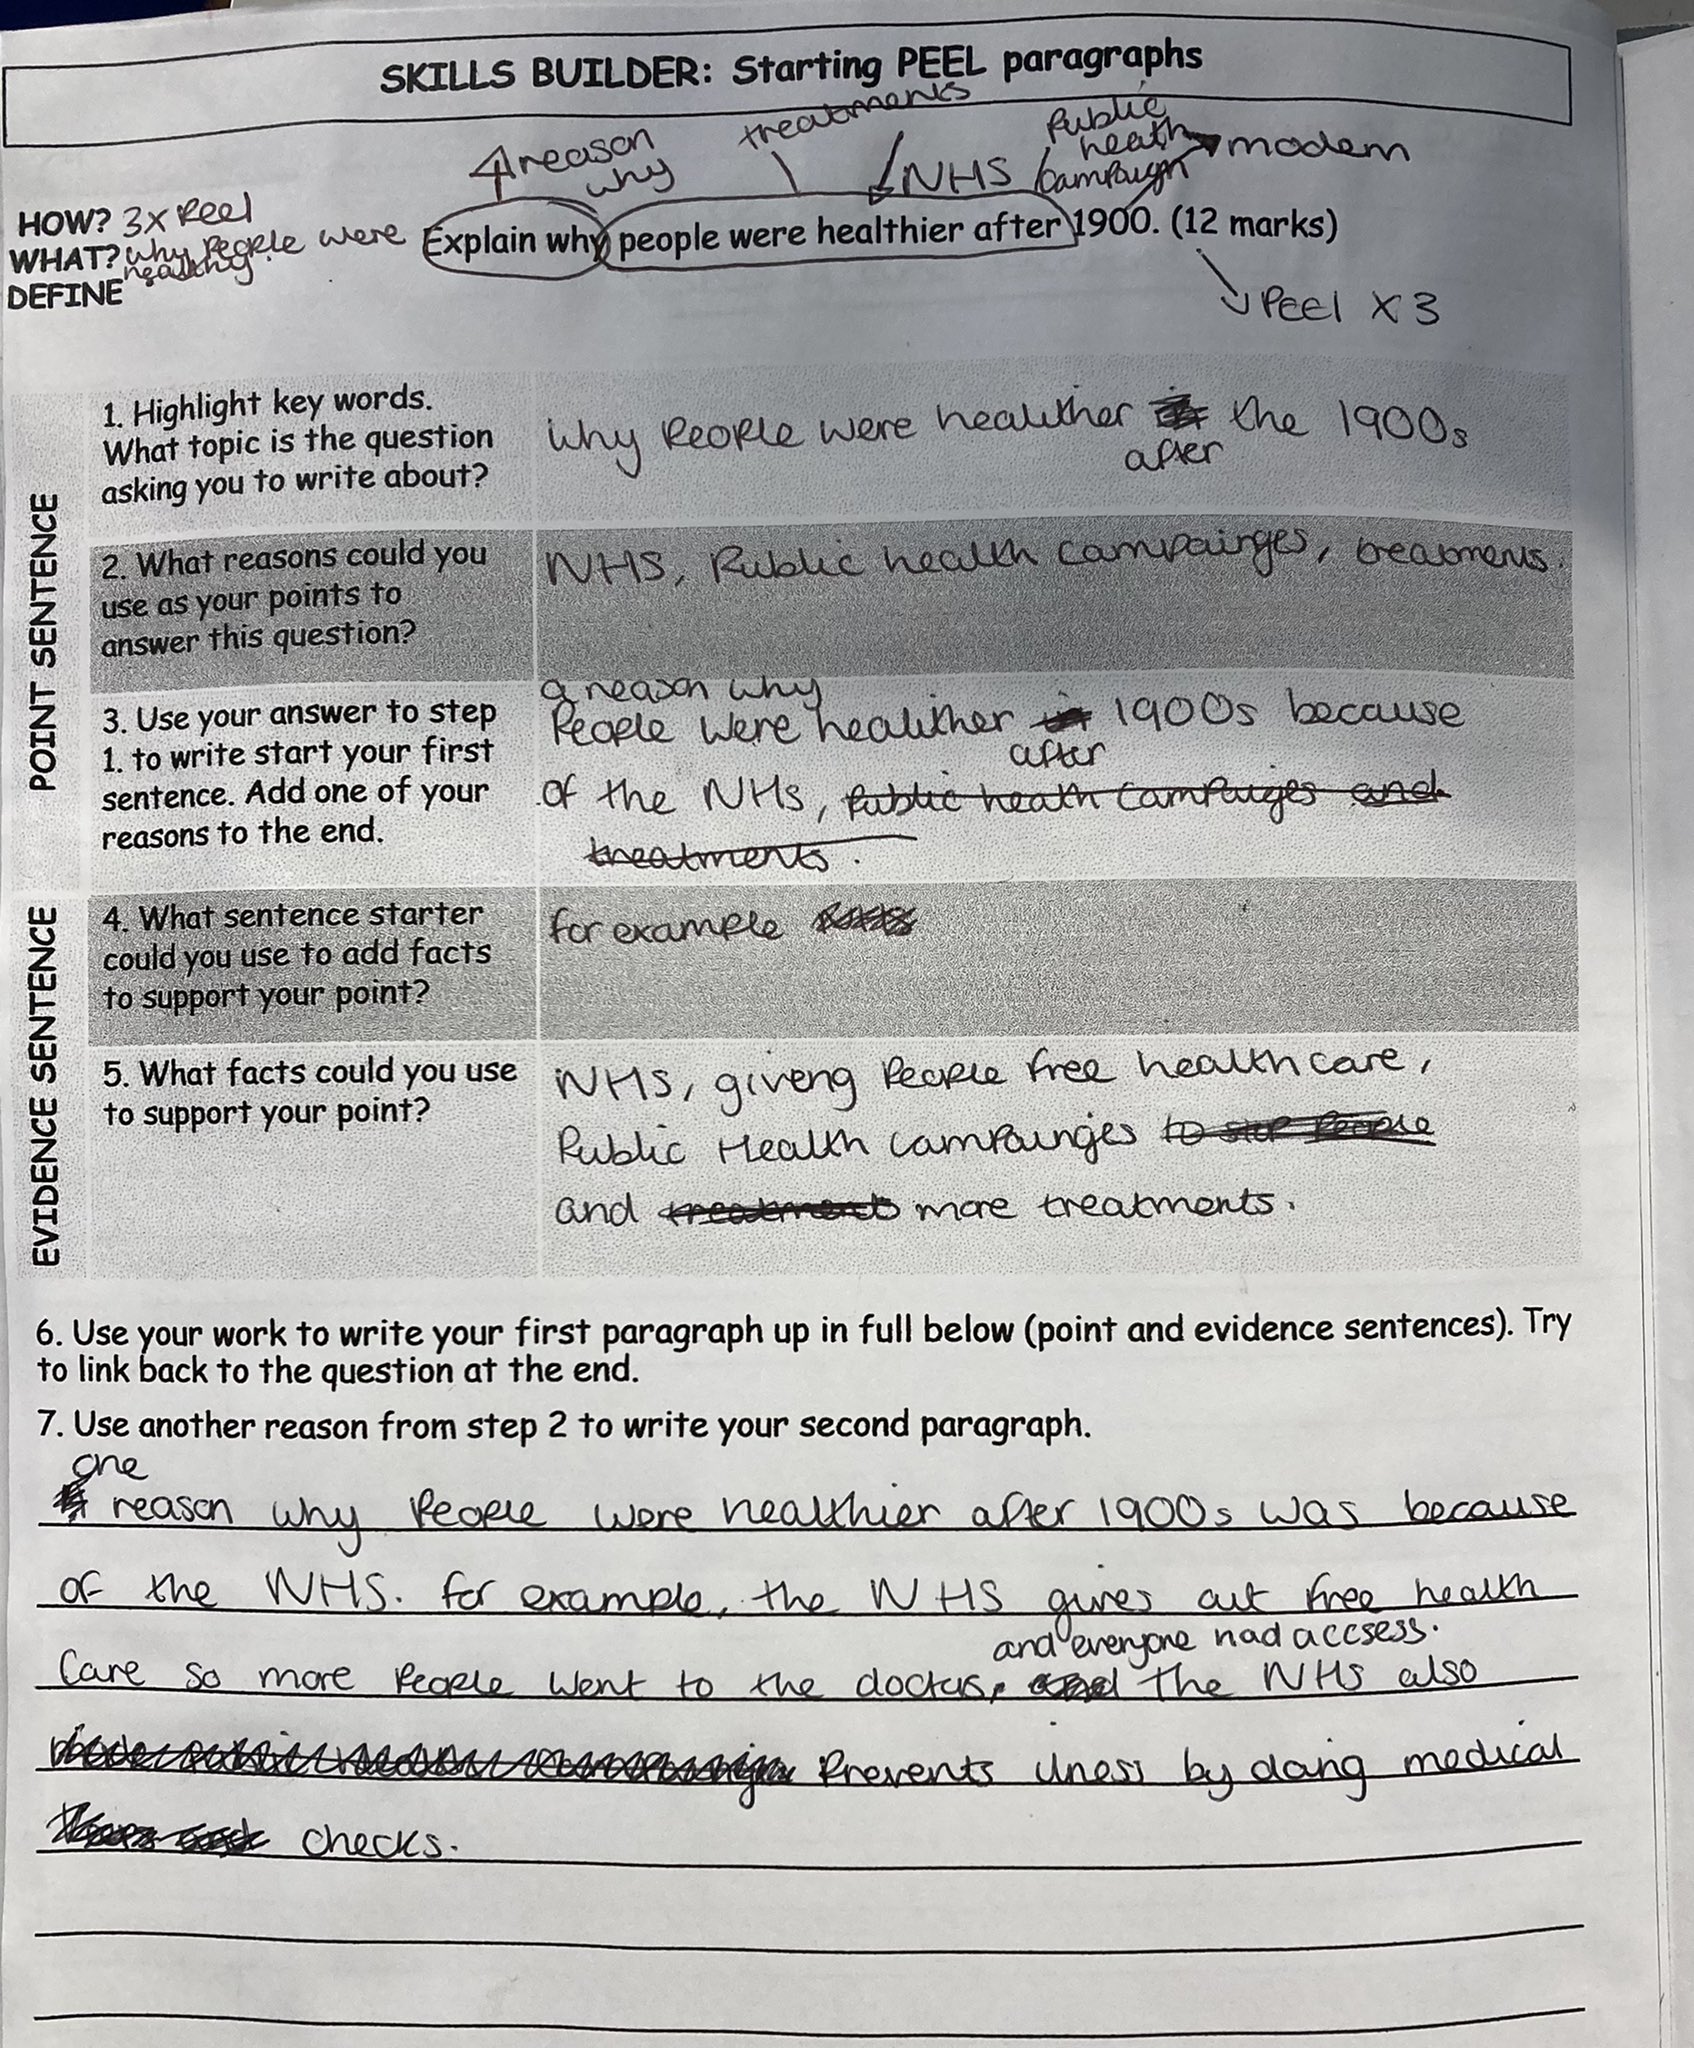 SKILLS BUILDER: Starting PEEL paragraphs
treatments
reason why
NHS
Public heath campaign
modern
HOW? 3x Peel
WHAT? why people were healthy.
DEFINE
Explain why people were healthier after 1900. (12 marks)
Peel x 3
POINT SENTENCE
1. Highlight key words.
What topic is the question
asking you to write about?
why people were healither after the 1900s
2. What reasons could you
use as your points to
answer this question?
NHS, Public health campainges, treatments.
3. Use your answer to step
1. to write start your first
sentence. Add one of your
reasons to the end.
a reason why
People were healither after 1900s because
of the NHS, Public heath campainges and
treatments.
EVIDENCE SENTENCE
4. What sentence starter
could you use to add facts
to support your point?
for example
5. What facts could you use
to support your point?
NHS, giveng people free healthcare,
Public Health campainges
and treatments more treatments.
6. Use your work to write your first paragraph up in full below (point and evidence sentences). Try
to link back to the question at the end.
7. Use another reason from step 2 to write your second paragraph.
one
reason why people were healthier after 1900s was because
of the NHS. for example, the NHS gives out free health
and everyone had accsess.
care so more people went to the doctors, the NHS also
Prevents ilness by doing medical
checks.